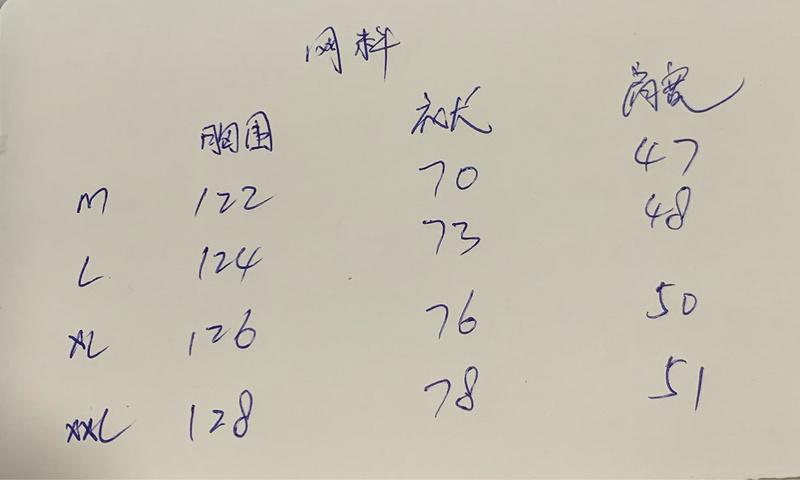 网料
胸围 衣长 肩宽
M 122 70 47
L 124 73 48
XL 126 76 50
XXL 128 78 51